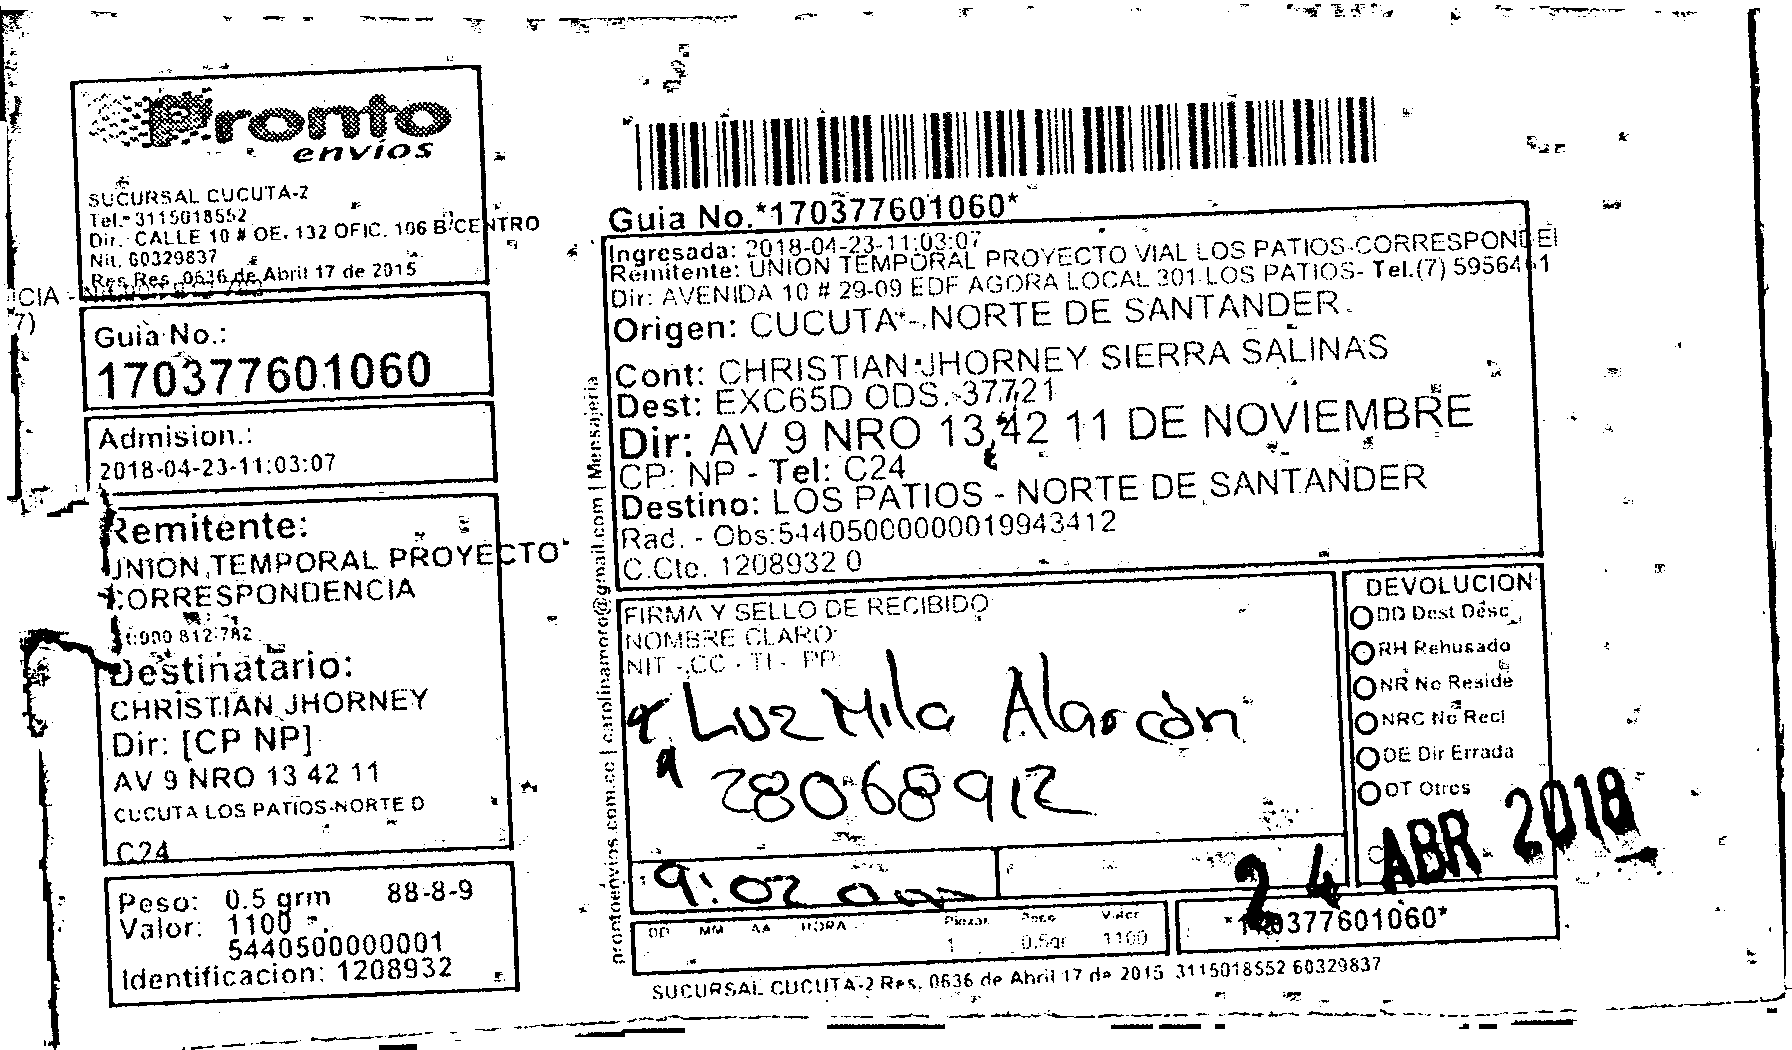 Pronto
envios
SUCURSAL CUCUTA-2
Tel. 3115018552
Dir. CALLE 10 # OE. 132 OFIC. 106 B/CENTRO
Nit. 60329837
Res Res. 0636 de Abril 17 de 2015
CIA -
7)
Guia No.:
170377601060
Admision.:
2018-04-23-11:03:07
Remitente:
UNION TEMPORAL PROYECTO
CORRESPONDENCIA
Destinatario:
CHRISTIAN JHORNEY
Dir: [CP NP]
AV 9 NRO 13 42 11
CUCUTA LOS PATIOS-NORTE D
C24
Peso: 0.5 grm 88-8-9
Valor: 1100
5440500000001
Identificacion: 1208932
prontoenvios.com.co | carolinamoro@gmail.com | Mensajeria
Guia No.*170377601060*
Ingresada: 2018-04-23-11:03:07
Remitente: UNION TEMPORAL PROYECTO VIAL LOS PATIOS-CORRESPONDEI
Dir: AVENIDA 10 # 29-09 EDF AGORA LOCAL 301 LOS PATIOS- Tel.(7) 5956461
Origen: CUCUTA - NORTE DE SANTANDER
Cont: CHRISTIAN JHORNEY SIERRA SALINAS
Dest: EXC65D ODS. 37721
Dir: AV 9 NRO 13 42 11 DE NOVIEMBRE
CP: NP - Tel: C24
Destino: LOS PATIOS - NORTE DE SANTANDER
Rad. - Obs:54405000000019943412
C.Cto. 1208932 0
FIRMA Y SELLO DE RECIBIDO
NOMBRE CLARO
NIT - CC - TI - PP
Luz Mila Alarcón
28068912
9:02 am
DD MM AA HORA Piezas Peso Valor
1 0.5gr 1100
DEVOLUCION
DD Dest Desc
RH Rehusado
NR No Reside
NRC No Recl
DE Dir Errada
OT Otros
24 ABR 2018
*170377601060*
SUCURSAL CUCUTA-2 Res. 0636 de Abril 17 de 2015 3115018552 60329837